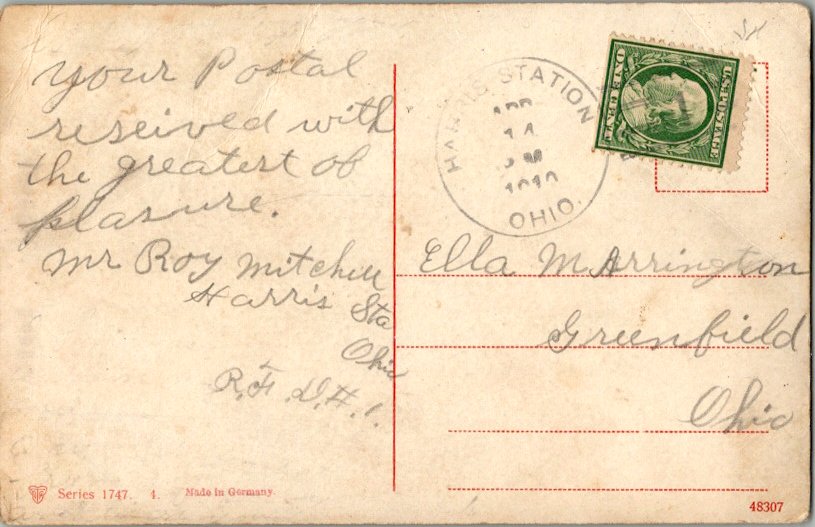 your Postal
reseived with
the greatest of
plasure.
Mr Roy Mitchell
Harris Sta
Ohio
R.F.D.#.1.
HARRIS STATION
APR
14
PM
1910
OHIO.
ONE CENT
U.S. POSTAGE
Ella M Arrington
Greenfield
Ohio
Series 1747. 4. Made in Germany.
48307